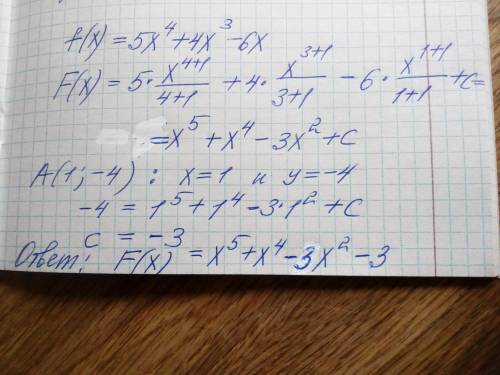 f(x) = 5x⁴+4x³-6x
F(x) = 5·x⁴⁺¹/4+1 + 4·x³⁺¹/3+1 - 6·x¹⁺¹/1+1 + c=
=x⁵+x⁴-3x²+c
A(1;-4): x=1 и y=-4
-4 = 1⁵+1⁴-3·1²+c
c = -3
Ответ: F(x) = x⁵+x⁴-3x²-3